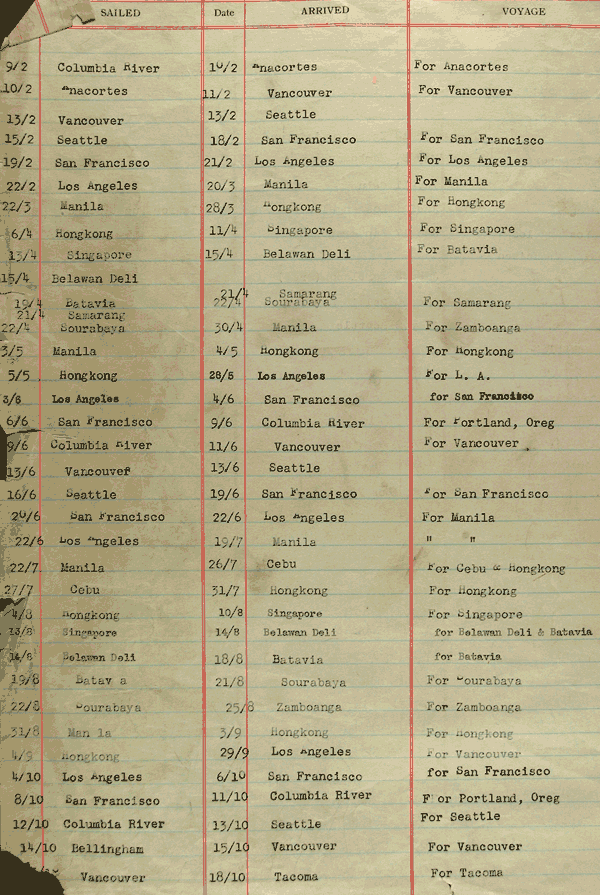 SAILED Date ARRIVED VOYAGE
9/2 Columbia River 10/2 Anacortes For Anacortes
10/2 Anacortes 11/2 Vancouver For Vancouver
13/2 Vancouver 13/2 Seattle
15/2 Seattle 18/2 San Francisco For San Francisco
19/2 San Francisco 21/2 Los Angeles For Los Angeles
22/2 Los Angeles 20/3 Manila For Manila
22/3 Manila 28/3 Hongkong For Hongkong
6/4 Hongkong 11/4 Singapore For Singapore
13/4 Singapore 15/4 Belawan Deli For Batavia
15/4 Belawan Deli
19/4 Batavia 21/4 Samarang For Samarang
21/4 Samarang 22/4 Sourabaya
22/4 Sourabaya 30/4 Manila For Zamboanga
3/5 Manila 4/5 Hongkong For Hongkong
5/5 Hongkong 28/5 Los Angeles For L. A.
3/6 Los Angeles 4/6 San Francisco for San Francisco
6/6 San Francisco 9/6 Columbia River For Portland, Oreg
9/6 Columbia River 11/6 Vancouver For Vancouver .
13/6 Vancouver 13/6 Seattle
16/6 Seattle 19/6 San Francisco For San Francisco
20/6 San Francisco 22/6 Los Angeles For Manila
22/6 Los Angeles 19/7 Manila " "
22/7 Manila 26/7 Cebu For Cebu & Hongkong
27/7 Cebu 31/7 Hongkong For Hongkong
4/8 Hongkong 10/8 Singapore For Singapore
13/8 Singapore 14/8 Belawan Deli for Belawan Deli & Batavia
14/8 Belawan Deli 18/8 Batavia for Batavia
19/8 Batav a 21/8 Sourabaya For Sourabaya
22/8 Sourabaya 25/8 Zamboanga For Zamboanga
31/8 Man la 3/9 Hongkong For Hongkong
4/9 Hongkong 29/9 Los Angeles For Vancouver
4/10 Los Angeles 6/10 San Francisco for San Francisco
8/10 San Francisco 11/10 Columbia River F or Portland, Oreg
12/10 Columbia River 13/10 Seattle For Seattle
14/10 Bellingham 15/10 Vancouver For Vancouver
Vancouver 18/10 Tacoma For Tacoma